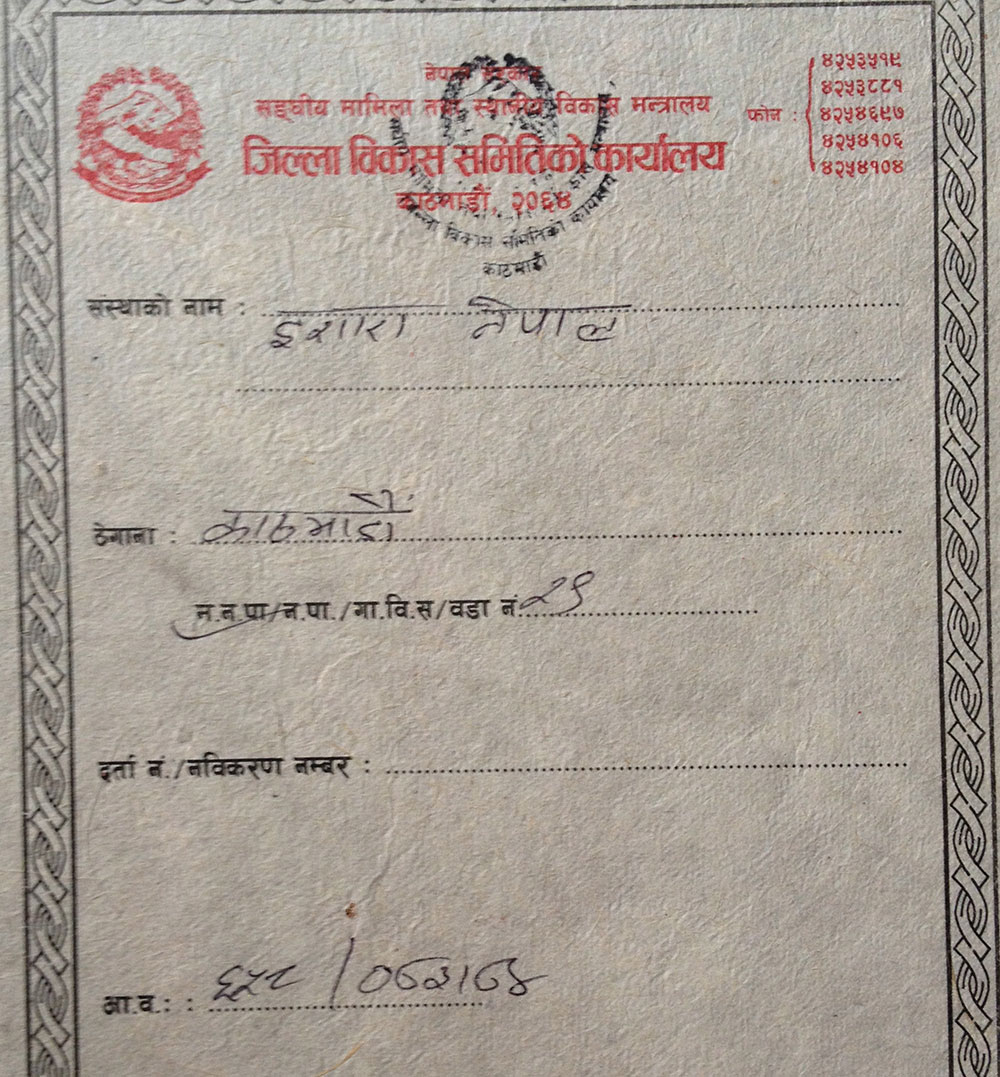 नेपाल सरकार
सङ्घीय मामिला तथा स्थानीय विकास मन्त्रालय
जिल्ला विकास समितिको कार्यालय
काठमाडौं, २०६४
फोन :
४२५३५१९
४२५३८८१
४२५४६९७
४२५४१०६
४२५४१०४
जिल्ला विकास समितिको कार्यालय
काठमाडौं
संस्थाको नाम : इशारा नेपाल
ठेगाना : काठमाडौं
म.न.पा/न.पा./गा.वि.स/वडा नं. २९
दर्ता नं./नविकरण नम्बर :
आ.व.: :